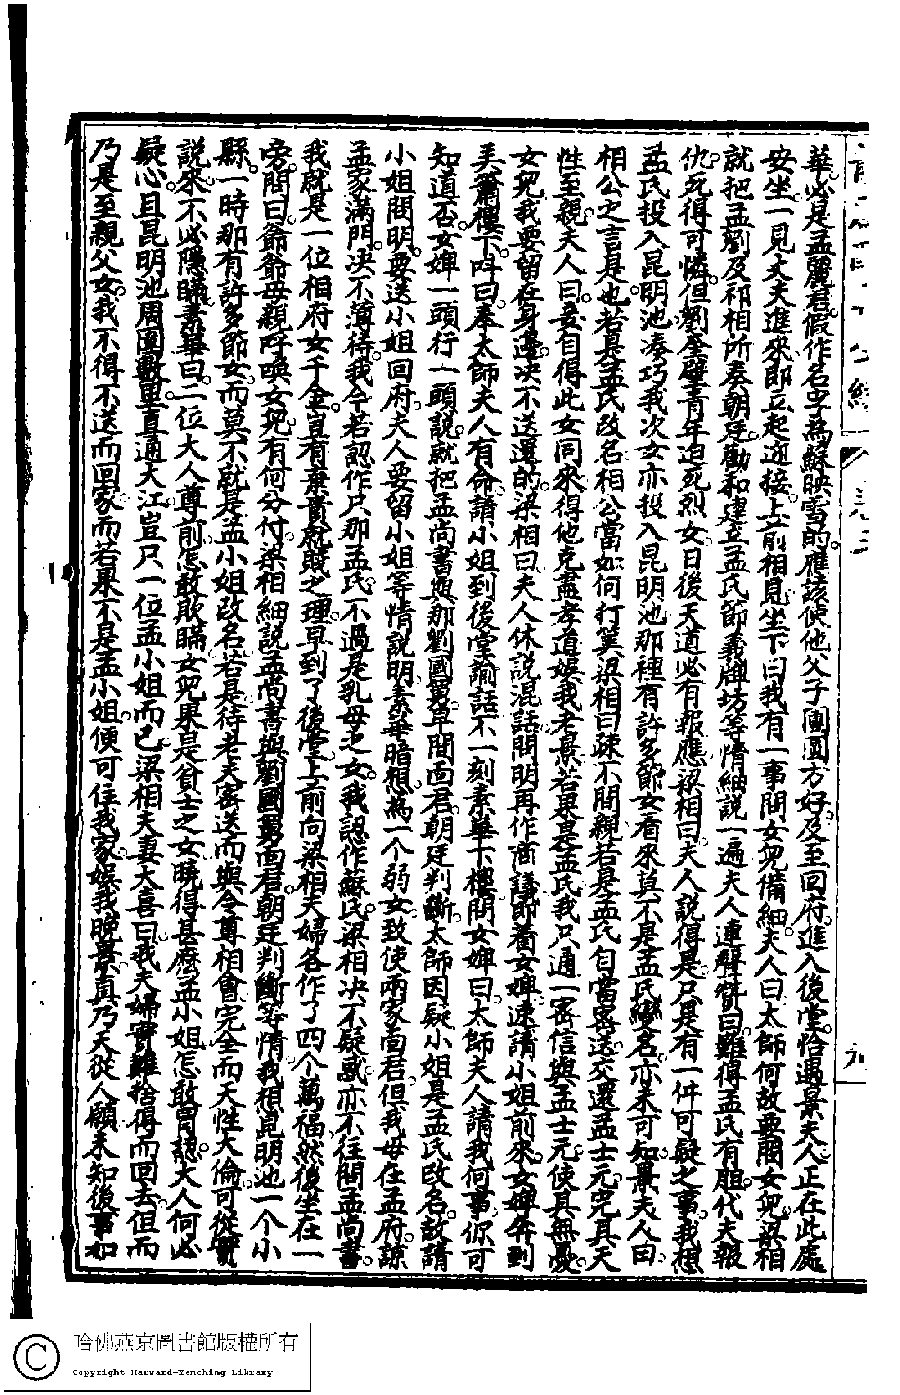 華必是孟麗君假作名字為蘇映雪的應該使他父子團圓方好及至回府進入後堂恰遇景夫人正在此處
安坐一見丈夫進來即忙起迎接上前相見坐下曰我有一事問女兒備細夫人曰太師何故要問女兒梁相
就把孟劉及祁相所奏朝廷勸和建立孟氏節義牌坊等情細說一遍夫人連聲贊曰難得孟氏有胆代夫報
仇死得可憐但劉奎璧青年迫死烈女日後天道必有報應梁相曰夫人說得是只是有一件可疑之事我想
孟氏投入昆明池湊巧我次女亦投入昆明池那裡有許多節女看來莫不是孟氏變名亦未可知景夫人曰
相公之言是也若是孟氏改名相公當如何打算梁相曰疎不間親若是孟氏自當密送交還孟士元完其天
性至親夫人曰妾自得此女同來得他克盡孝道娛我老景若果是孟氏我只通一密信與孟士元使其無憂
女兒我要留在身邊决不送還的梁相曰夫人休說混話問明再作商議即着女婢速請小姐前來女婢奔到
弄簫樓下叫曰奉太師夫人有命請小姐到後堂諭話不一刻素華下樓問女婢曰太師夫人請我何事你可
知道否女婢一頭行一頭說就把孟尚書與那劉國舅早間面君朝廷判斷太師因疑小姐是孟氏改名故請
小姐問明要送小姐回府夫人要留小姐等情說明素華暗想為一个弱女致使兩家面君但我母在孟府諒
孟家滿門决不薄待我今若認作只那孟氏不過是乳母之女我認作蘇氏梁相决不疑惑亦不往問孟尚書
我就是一位相府女千金豈有棄貴就賤之理早到了後堂上前向梁相夫婦各作了四个萬福然後坐在一
旁問曰爺爺母親呼喚女兒有何分付梁相細說孟尚書與劉國舅面君朝廷判斷等情我想昆明池一个小
縣一時那有許多節女而莫不就是孟小姐改名若是待老夫密送而與令尊相會完全而天性大倫可從實
說來不必隱瞞素華曰二位大人尊前怎敢欺瞞女兒果是貧士之女曉得甚麽孟小姐怎敢冒認大人何必
疑心且昆明池周圍數里直通大江豈只一位孟小姐而已梁相夫妻大喜曰我夫婦實難捨得而回去但而
乃是至親父女我不得不送而回家而若果不是孟小姐便可住我家娛我晚景真乃天從人願未知後事如
九
哈佛燕京圖書館版權所有
Copyright Harvard-Yenching Library